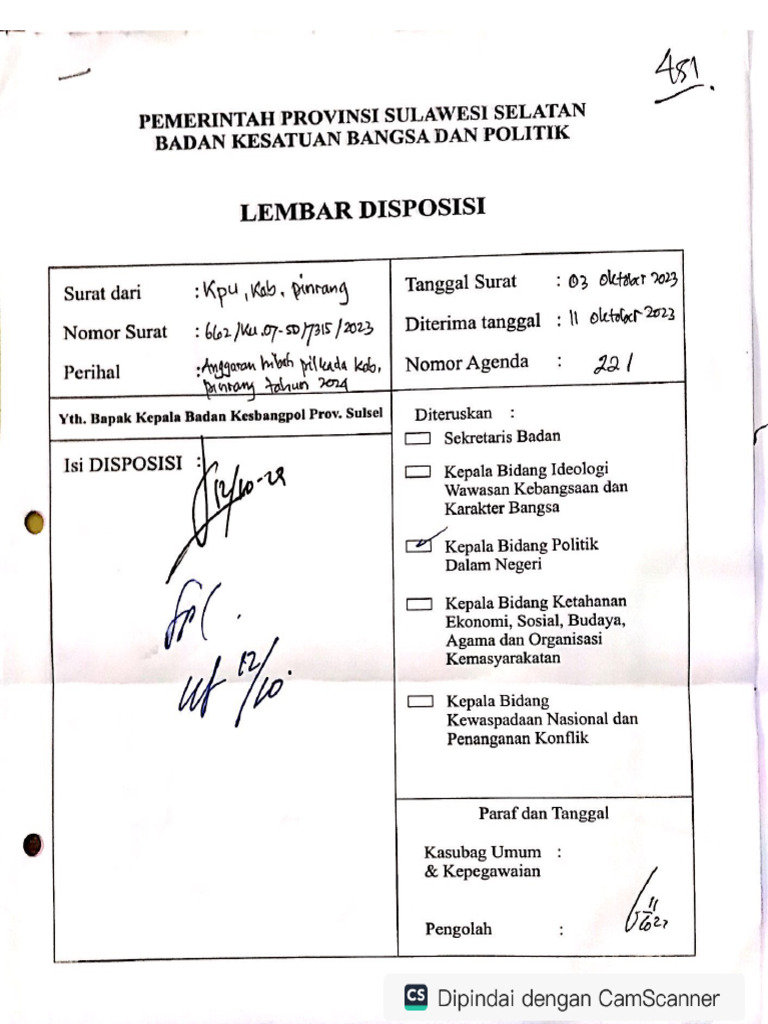 481.
PEMERINTAH PROVINSI SULAWESI SELATAN
BADAN KESATUAN BANGSA DAN POLITIK
LEMBAR DISPOSISI
Surat dari : Kpu, Kab. Pinrang
Nomor Surat : 662/Ku.07-SD/7315/2023
Perihal : Anggaran hibah pilkada Kab,
pinrang tahun 2024
Tanggal Surat : 03 Oktober 2023
Diterima tanggal : 11 Oktober 2023
Nomor Agenda : 221
Yth. Bapak Kepala Badan Kesbangpol Prov. Sulsel
Isi DISPOSISI :
12/10-23
12/10.
Diteruskan :
Sekretaris Badan
Kepala Bidang Ideologi
Wawasan Kebangsaan dan
Karakter Bangsa
Kepala Bidang Politik
Dalam Negeri
Kepala Bidang Ketahanan
Ekonomi, Sosial, Budaya,
Agama dan Organisasi
Kemasyarakatan
Kepala Bidang
Kewaspadaan Nasional dan
Penanganan Konflik
Paraf dan Tanggal
Kasubag Umum :
& Kepegawaian
Pengolah :
CS Dipindai dengan CamScanner